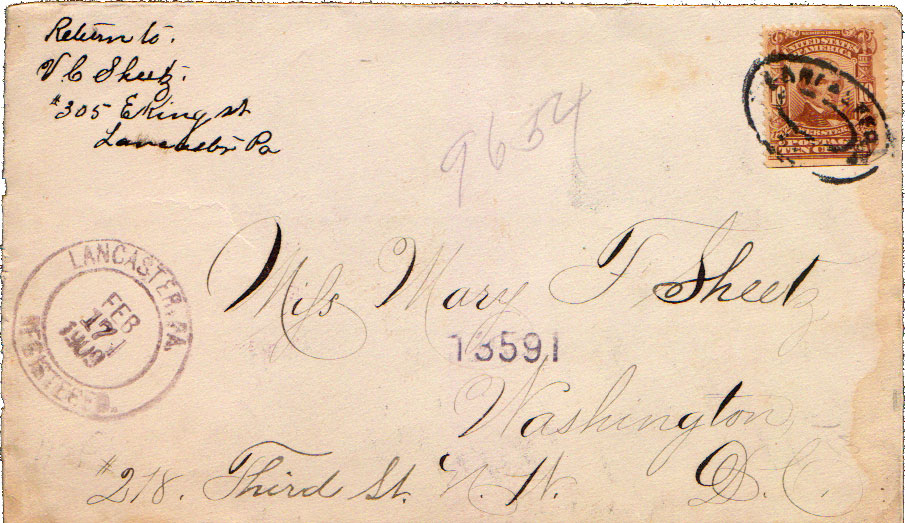 Return to.
V C Sheetz.
#305 E King st
Lancaster Pa
UNITED STATES
OF AMERICA
LANCASTER
WEBSTER
POSTAGE
TEN CENTS
9654
LANCASTER, PA.
FEB
17
1909
REGISTERED.
Miss Mary F Sheetz
13591
Washington
#218. Third St. N. W. D. C.